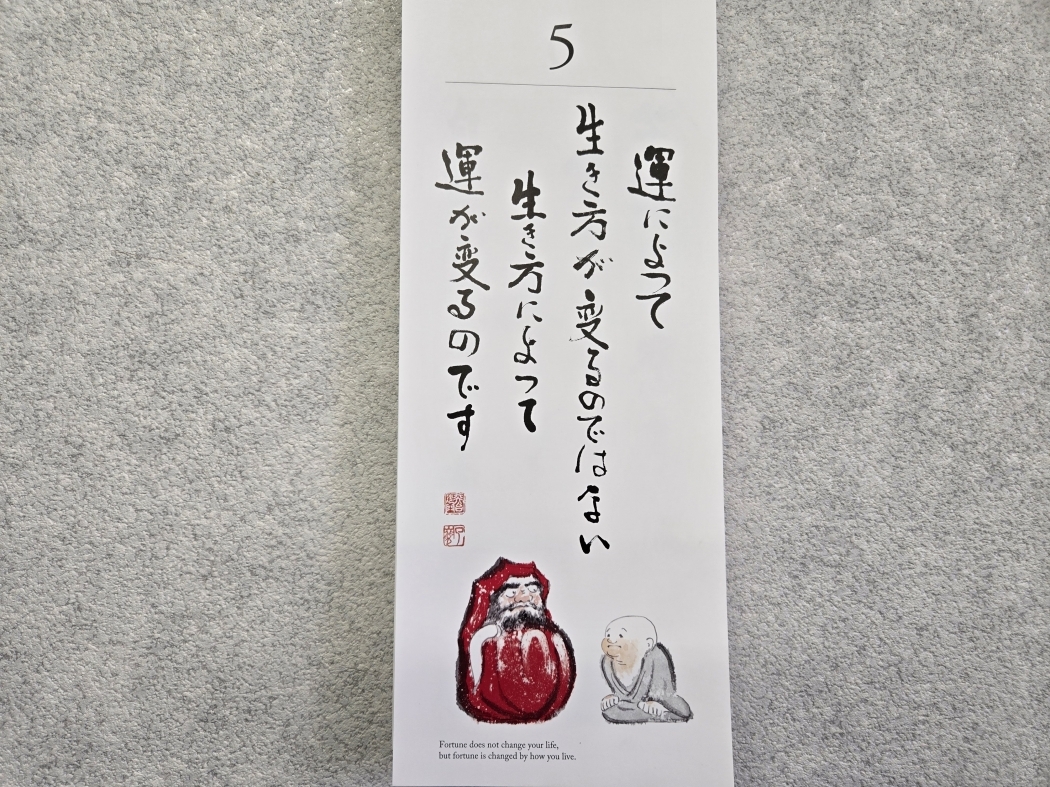 5
運によって
生き方が変るのではない
生き方によって
運が変るのです
Fortune does not change your life,
but fortune is changed by how you live.